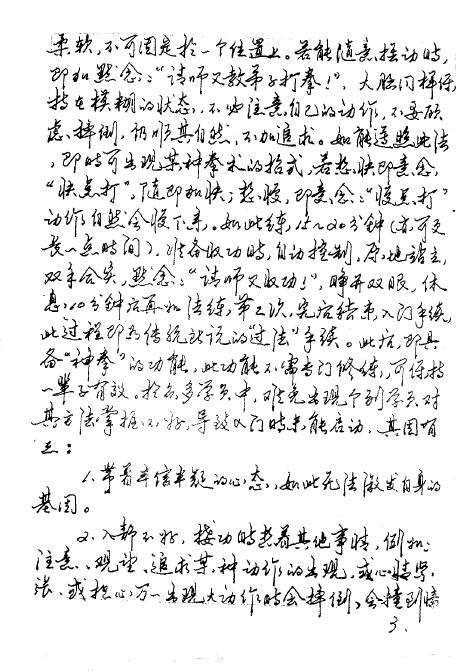 柔软，不可固定於一个位置上。若能随意摇动时，
即如默念：“请师父教弟子打拳！”，大脑同样保
持在模糊的状态，不必注意自己的动作，不要顾
虑摔倒，仍顺其自然，不加追求。如能遵照此法
，即时可出现某种拳术的招式，若想快即意念，
“快点打”，随即加快；想慢，即意念：“慢点打”
动作自然会慢下来。如此练，15～20分钟（亦可更
长一点时间），准备收功时，自动控制，原地站立，
双手合实，默念：“请师父收功！”，睁开双眼，休
息，10分钟后再如法练，第二次，完后结束入门手续，
此过程即为传统所说的“过法”手续。此后，即具
备“神拳”的功能，此功能不需专门修练，可保持
一辈子有效。於众多学员中，难免出现个别学员对
其方法掌握不好，导致入门时未能启动，其因有
三：
1.带着半信半疑的心态，如此无法激发自身的
基因。
2.入静不好，接功时想着其他事情，例如：
注意、观望、追求某种动作的出现，或心情紧
张、或担心万一出现大动作时会摔倒，会撞到墙
3.